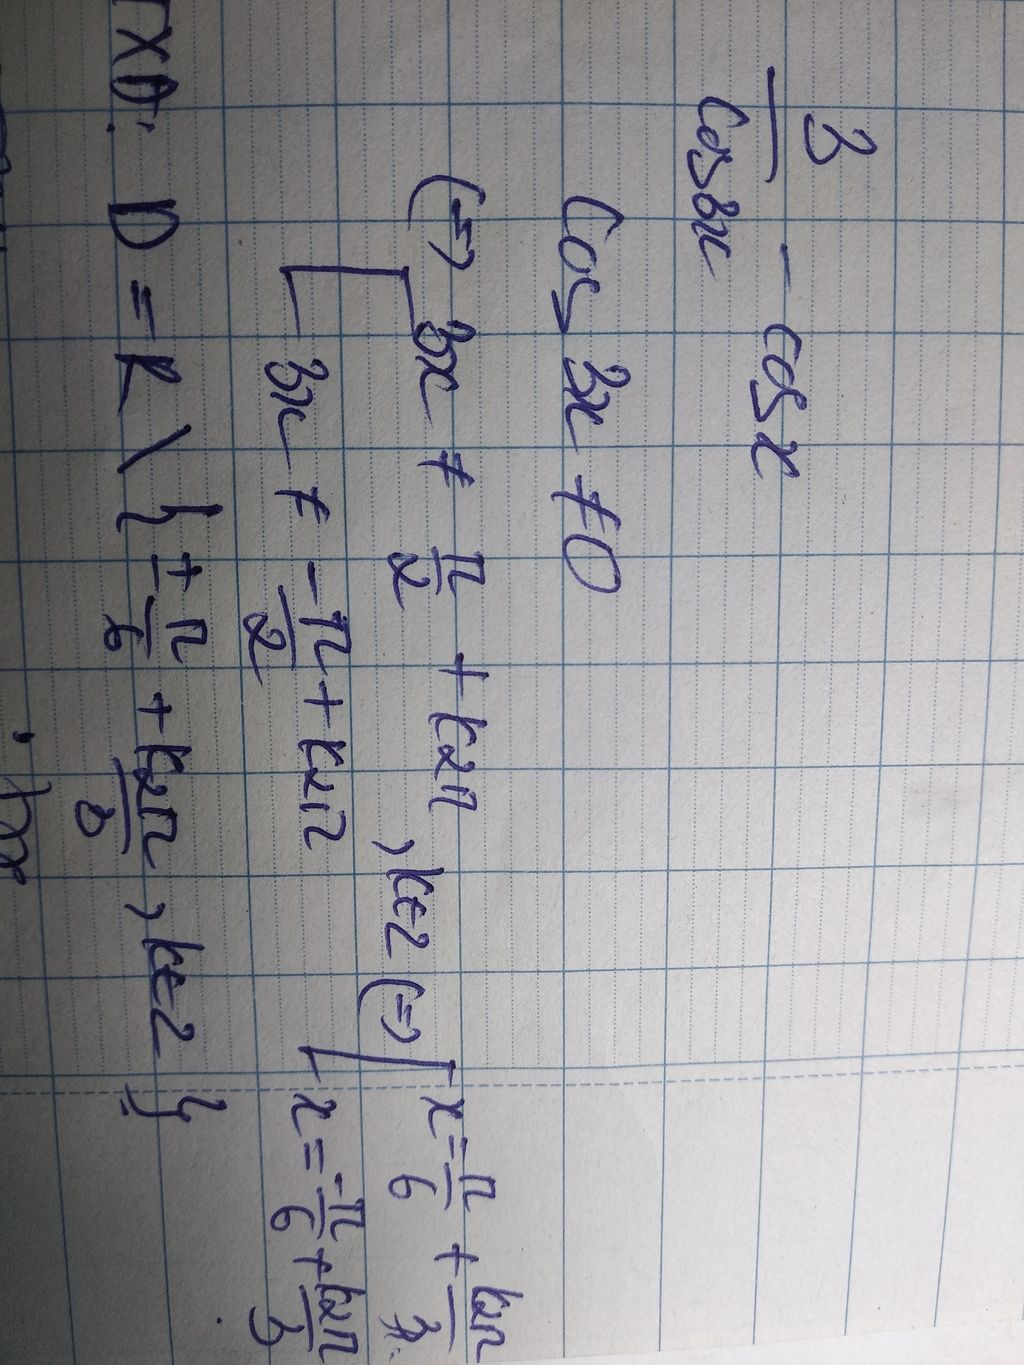 3/cos3x - cosx
cos 3x ≠ 0
(=) [ 3x ≠ π/2 + k2π
3x ≠ -π/2 + k2π , k∈Z (=) [ x = π/6 + k2π/3
x = -π/6 + k2π/3
TXĐ: D = R \ { ± π/6 + k2π/3 , k∈Z }